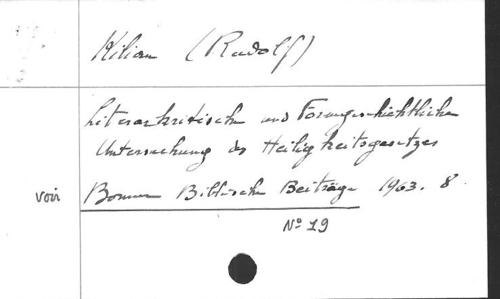 Kilian (Rudolf)
Literarkritische und Formgeschichtliche
Untersuchung des Heiligkeitsgesetzes
voir Bonner Biblische Beiträge 1963. 8
Nº 19